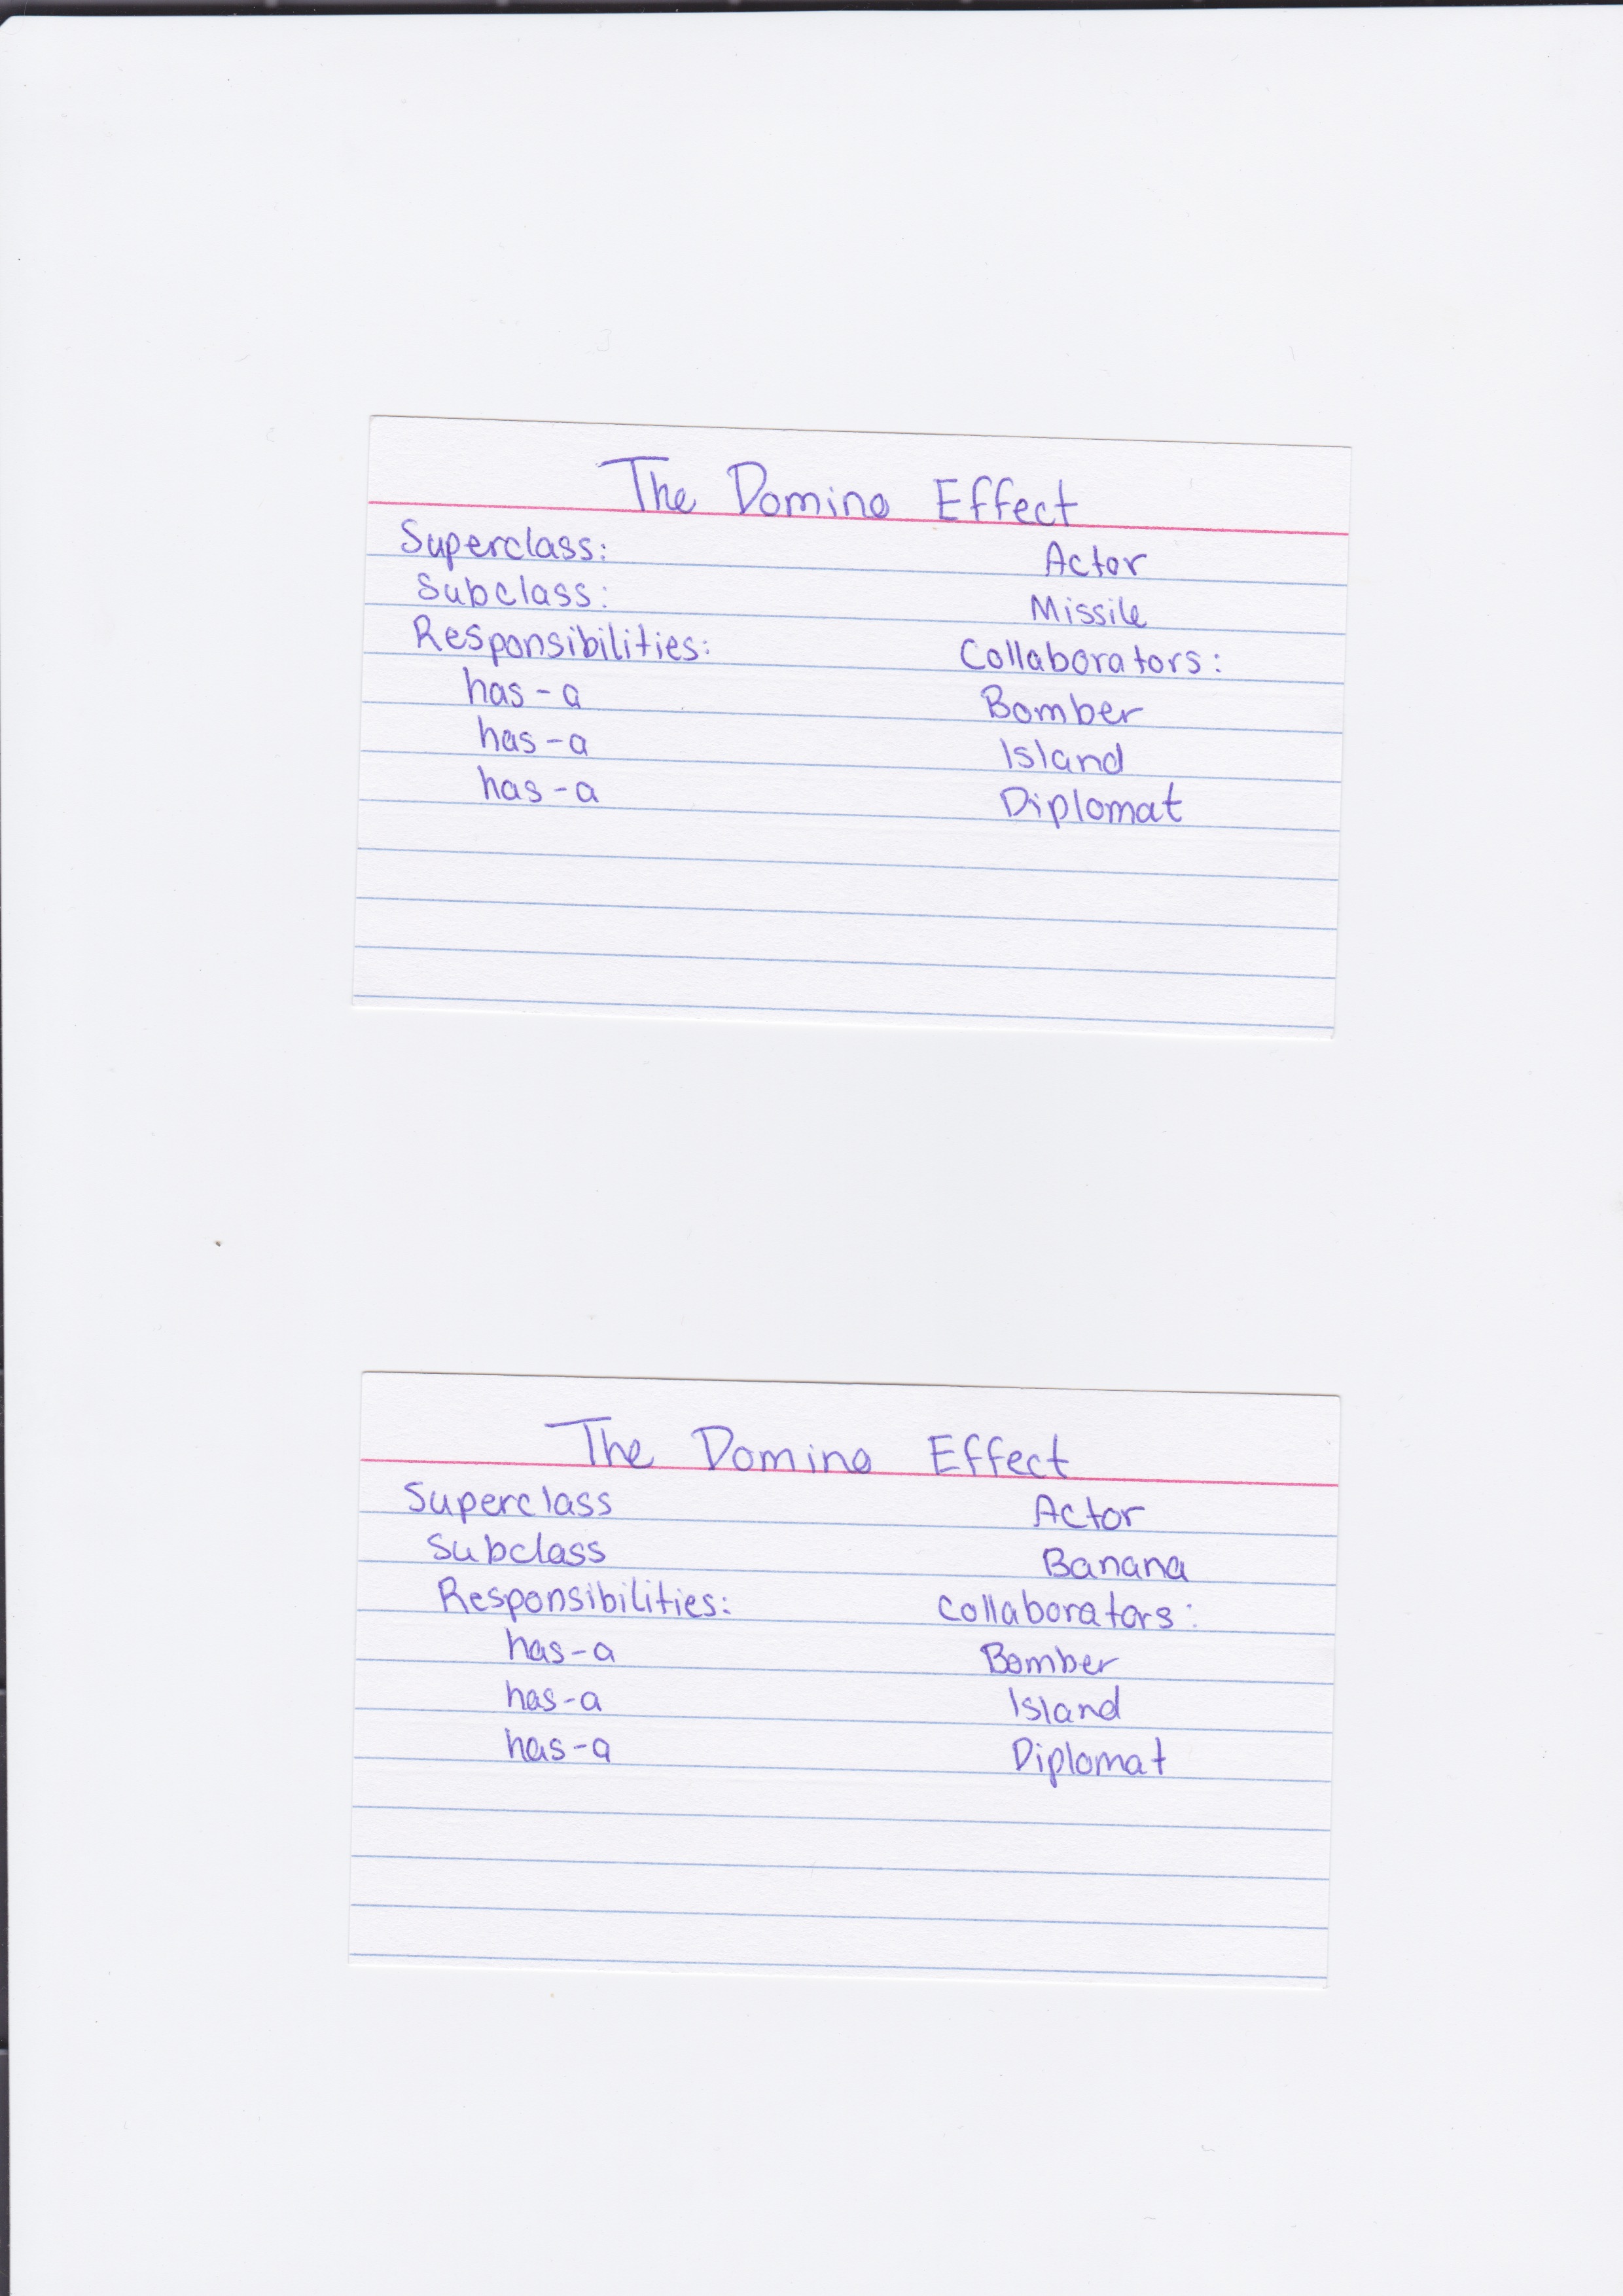 The Domino Effect
Superclass: Actor
Subclass: Missile
Responsibilities: Collaborators:
has-a Bomber
has-a Island
has-a Diplomat
The Domino Effect
Superclass Actor
Subclass Banana
Responsibilities: Collaborators:
has-a Bomber
has-a Island
has-a Diplomat